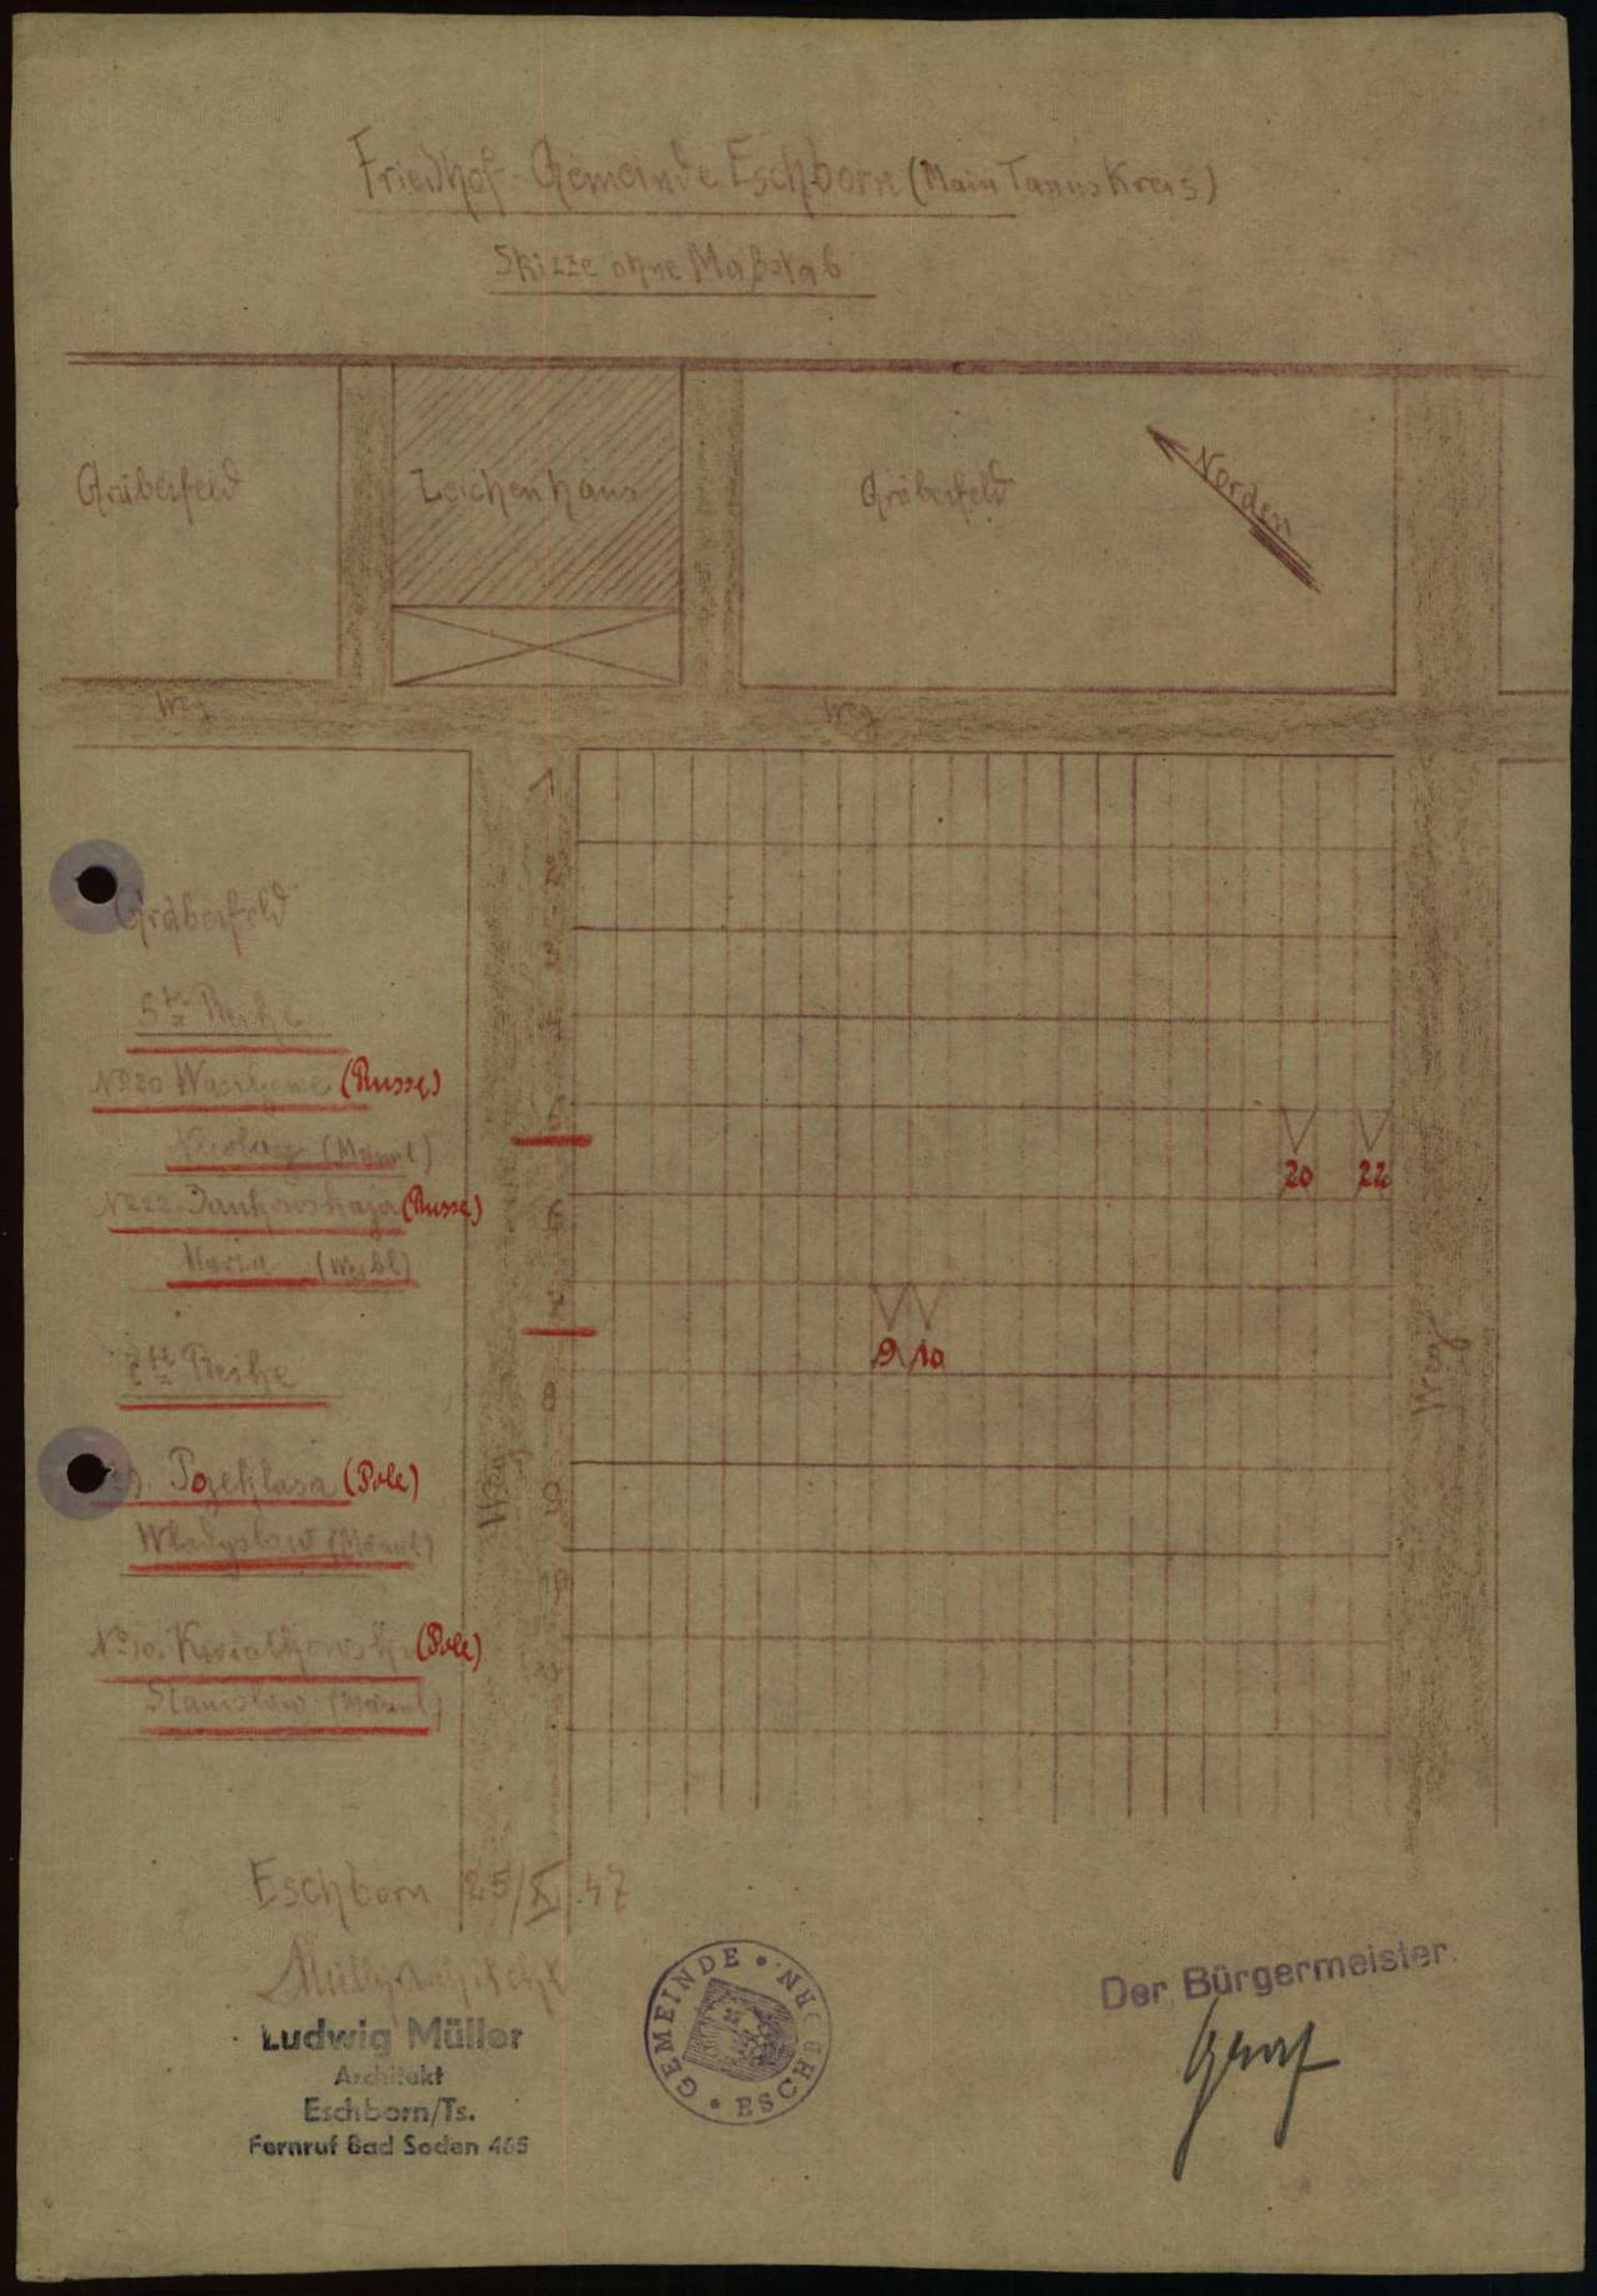 Friedhof Gemeinde Eschborn (Main Taunus Kreis)
Skizze ohne Maßstab
Gräberfeld
Leichenhaus
Gräberfeld
Norden
Weg
Weg
1
2
3
4
5
6
7
8
9
10
Gräberfeld
5te Reihe
No 20 (Russe)
Nicolay (Männl)
No 22. (Russe)
Maria (Weibl)
20
22
9
10
Reihe
9. (Pole)
Wladyslaw (Männl)
No 10. (Pole)
Stanislaw (Männl)
Weg
Weg
Eschborn 25/XI.47
Ludwig Müller
Architekt
Eschborn/Ts.
Fernruf Bad Soden 465
GEMEINDE ESCHBORN
Der Bürgermeister
Graf